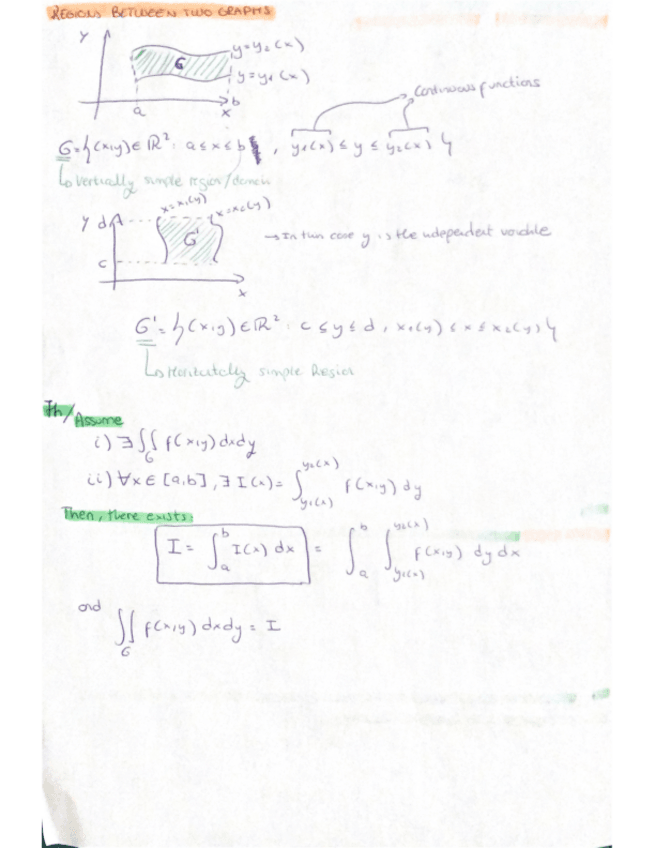 REGIONS BETWEEN TWO GRAPHS
y
y=y₂(x)
G
y=y₁(x)
a
b
x
Continuous functions
G={(x,y)∈ℝ²: a≤x≤b, y₁(x)≤y≤y₂(x)}
↳ Vertically simple region/domain
x=x₁(y) x=x₂(y)
y d
G'
→ In this case y is the independent variable
c
x
G'={(x,y)∈ℝ²: c≤y≤d, x₁(y)≤x≤x₂(y)}
↳ Horizontally simple Region
Th/Assume
i) ∃∬_G f(x,y) dxdy
ii) ∀x∈[a,b], ∃ I(x)=∫_{y₁(x)}^{y₂(x)} f(x,y) dy
Then, there exists:
I = ∫_a^b I(x) dx = ∫_a^b ∫_{y₁(x)}^{y₂(x)} f(x,y) dy dx
and
∬_G f(x,y) dxdy = I